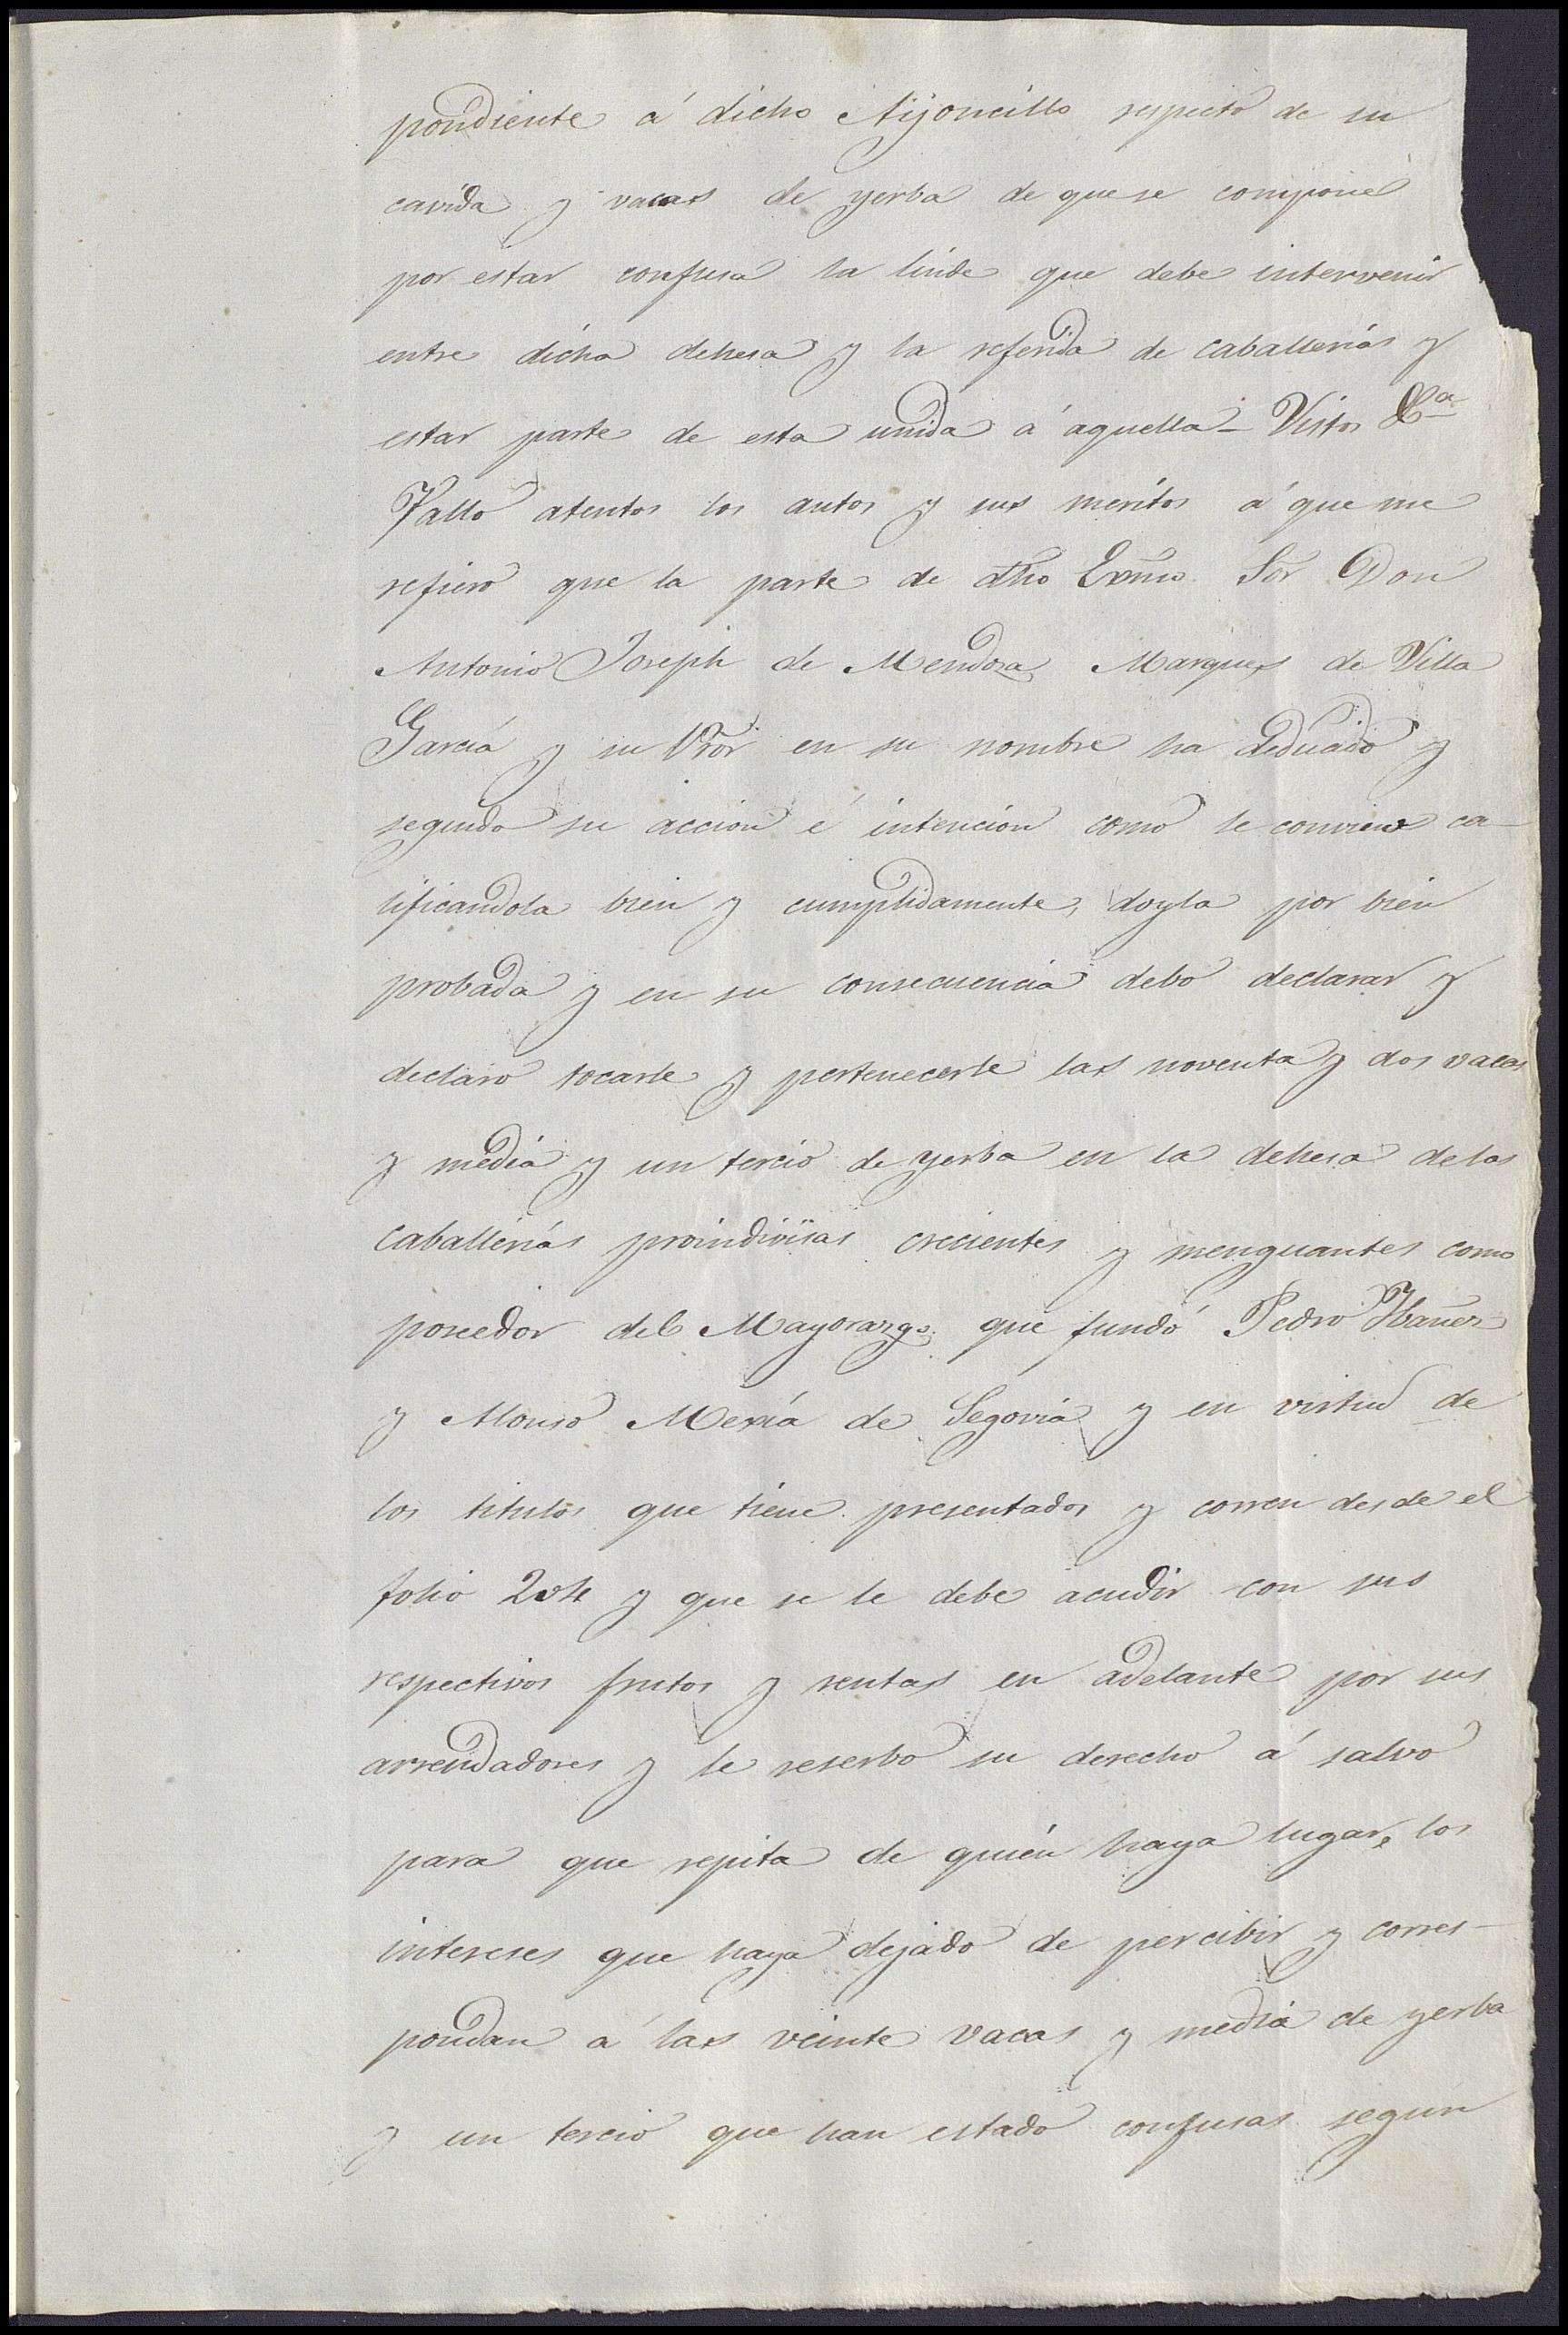 pondiente á dicho Aijoncillo respecto de su
cavida y vacas de yerba de que se compone
por estar confusa la linde que debe intervenir
entre dicha dehesa y la referida de caballerias y
estar parte de esta unida á aquella - Vistos &ª
Fallo atentos los autos y sus meritos á que me
refiero que la parte de dho Exmo. Sor Don
Antonio Joseph de Mendoza Marques de Villa
Garcia y su Pror en su nombre ha deducido y
seguido su accion é intencion como le conviene ca-
lificandola bien y cumplidamente, doyla por bien
probada y en su consecuencia debo declarar y
declaro tocarle y pertenecerle las noventa y dos vacas
y media y un tercio de yerba en la dehesa de las
caballerias proindivisas crecientes y menguantes como
poseedor del Mayorazgo que fundó Pedro Ybañez
y Alonso Mexía de Segovia y en virtud de
los titulos que tiene presentados y corren desde el
folio 204 y que se le debe acudir con sus
respectivos frutos y rentas en adelante por sus
arrendadores y le reserbo su derecho á salvo
para que repita de quien haya lugar, los
intereses que haya dejado de percibir y corres-
pondan á las veinte vacas y media de yerba
y un tercio que han estado confusas según